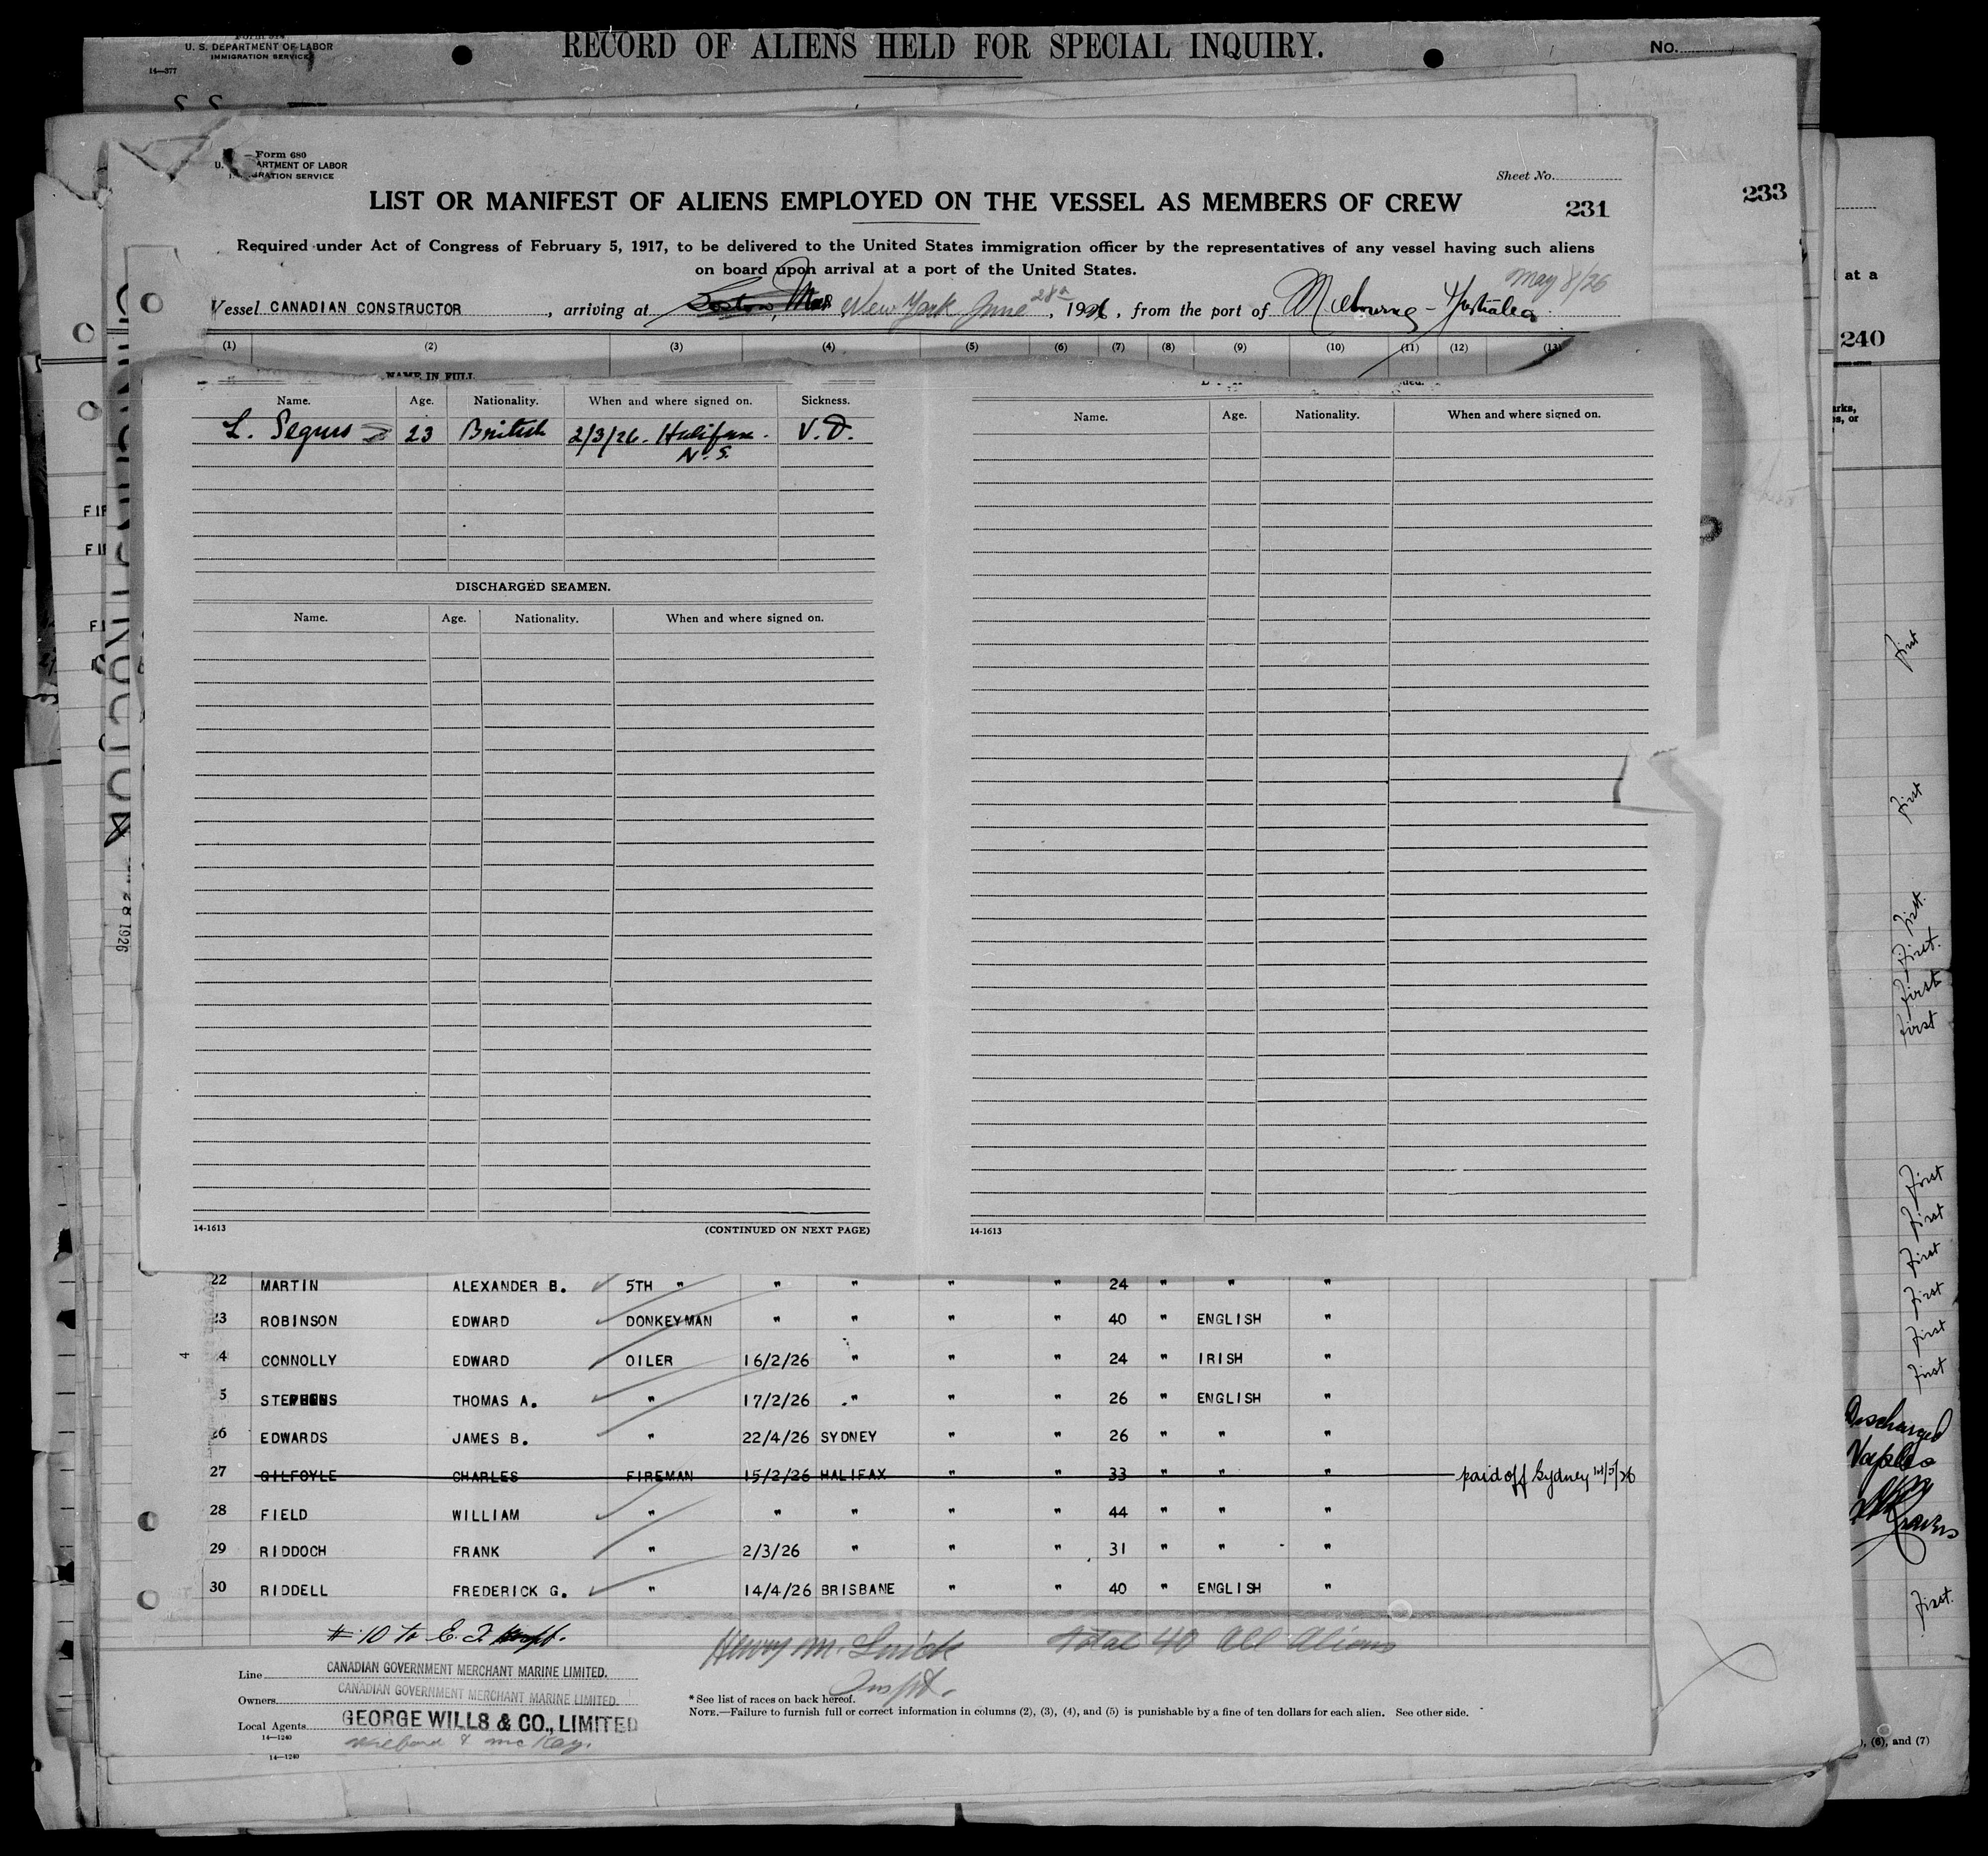 Form 524
U. S. DEPARTMENT OF LABOR
IMMIGRATION SERVICE
14—377
RECORD OF ALIENS HELD FOR SPECIAL INQUIRY.
No.
S S
Form 680
U. ARTMENT OF LABOR
RATION SERVICE
Sheet No.
LIST OR MANIFEST OF ALIENS EMPLOYED ON THE VESSEL AS MEMBERS OF CREW
231
233
Required under Act of Congress of February 5, 1917, to be delivered to the United States immigration officer by the representatives of any vessel having such aliens
on board upon arrival at a port of the United States.
at a
May 8/26
Vessel CANADIAN CONSTRUCTOR, arriving at Boston, Mass New York June 28th, 1926, from the port of Melbourne - Australia
240
(1) (2) (3) (4) (5) (6) (7) (8) (9) (10) (11) (12) (13)
NAME IN FULL
Name. Age. Nationality. When and where signed on. Sickness.
Name. Age. Nationality. When and where signed on.
L. 23 British 2/3/26. Halifax. V.D.
N.S.
DISCHARGED SEAMEN.
Name. Age. Nationality. When and where signed on.
14-1613 (CONTINUED ON NEXT PAGE)
14-1613
22 MARTIN ALEXANDER B. 5TH " " " " " 24 " " "
23 ROBINSON EDWARD DONKEYMAN " " " " 40 " ENGLISH "
4 CONNOLLY EDWARD OILER 16/2/26 " " " 24 " IRISH "
5 STEPHENS THOMAS A. " 17/2/26 " " " 26 " ENGLISH "
26 EDWARDS JAMES B. " 22/4/26 SYDNEY " " 26 " " "
27 GILFOYLE CHARLES FIREMAN 15/2/26 HALIFAX " " 33 " " " paid off Sydney
28 FIELD WILLIAM " " " " " 44 " " "
29 RIDDOCH FRANK " 2/3/26 " " " 31 " " "
30 RIDDELL FREDERICK G. " 14/4/26 BRISBANE " " 40 " ENGLISH "
# 10 to E. I.
Henry M. Total 40 All Aliens
Inspt.
Line CANADIAN GOVERNMENT MERCHANT MARINE LIMITED.
Owners CANADIAN GOVERNMENT MERCHANT MARINE LIMITED.
Local Agents GEORGE WILLS & CO., LIMITED
14—1240
14—1240
* See list of races on back hereof.
NOTE.—Failure to furnish full or correct information in columns (2), (3), (4), and (5) is punishable by a fine of ten dollars for each alien. See other side.
first
first
first.
first.
first
first
first
first
first
first
first
first
Discharged
Naples
first.
, (6), and (7)